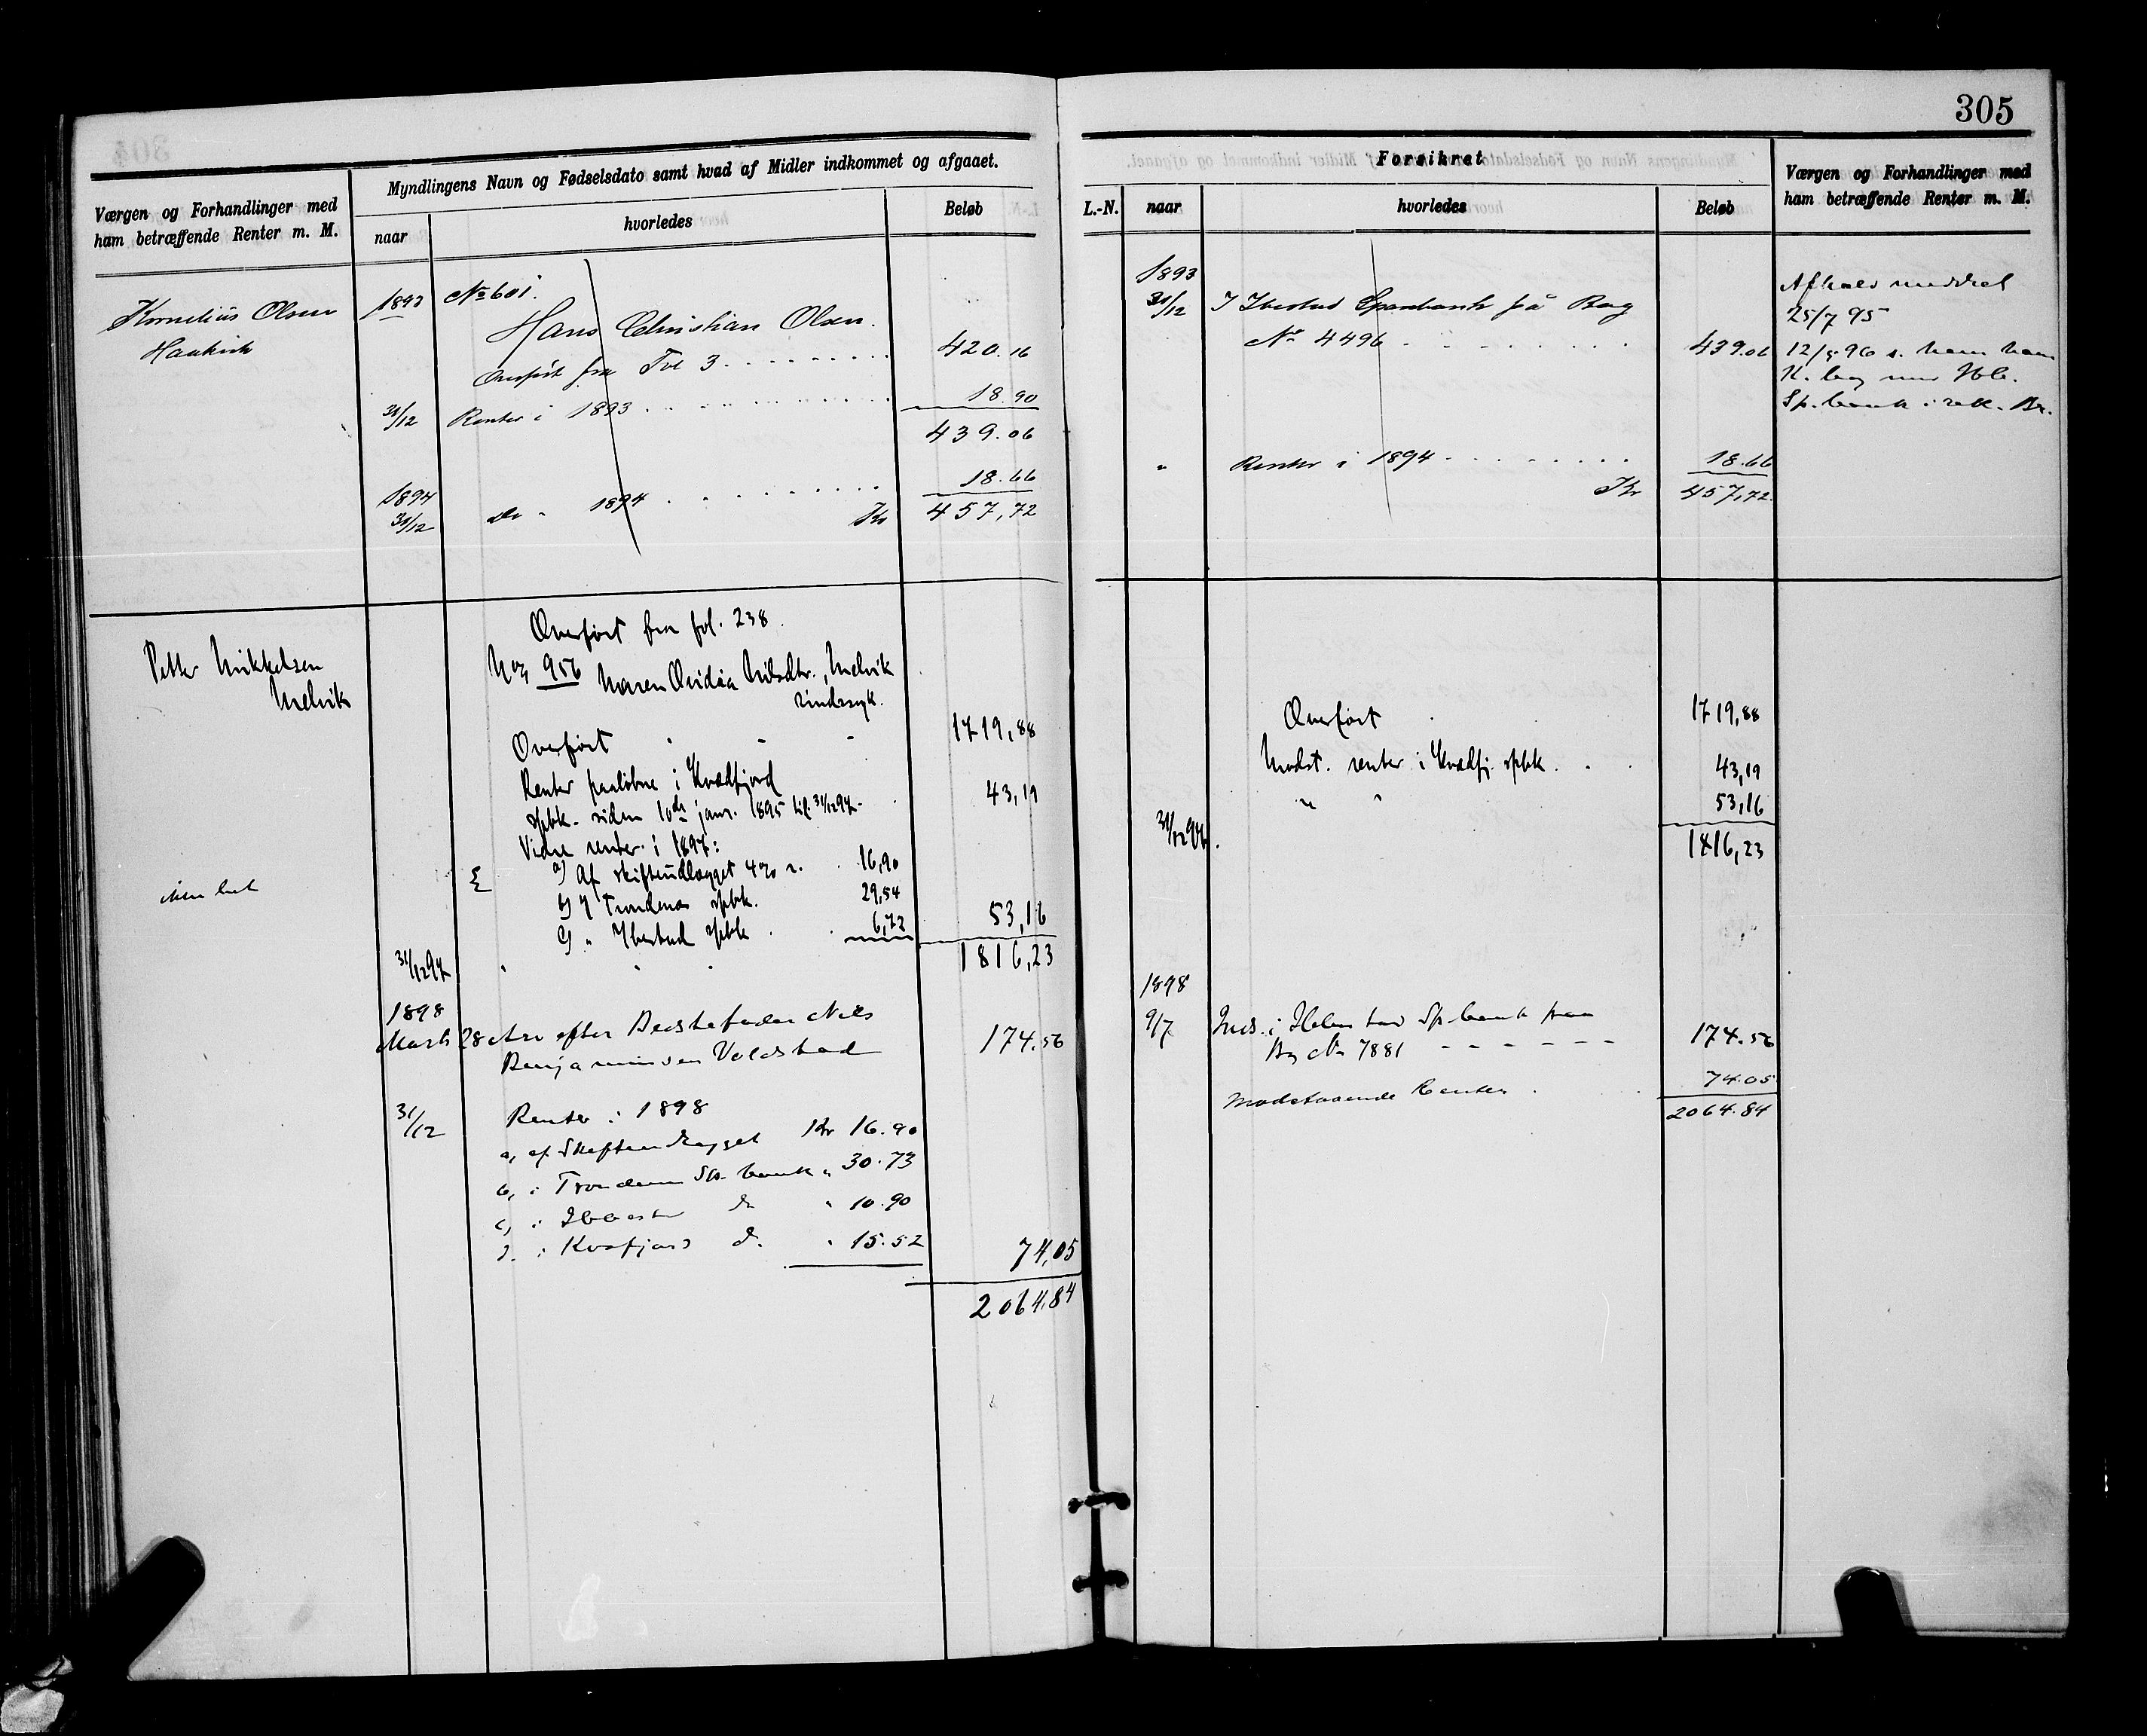 305
Værgen og Forhandlinger med
ham betræffende Renter m. M.
Myndlingens Navn og Fødselsdato samt hvad af Midler indkommet og afgaaet.
naar
hvorledes
Beløb
Kornelius Olsen
1893 No 601.
Hans Christian Olsen.
Overført fra Fol 3 420.16
31/12 Renter i 1893 18.90
439.06
1894
31/12 Do " 1894 18.66
Kr 457,72
Overført fra fol. 238.
Petter Mikkelsen
Melvik
No 956 Maren Ovidia Nilsdtr., Melvik
sindssyk.
Overført 1719,88
Renter paaløbne i Kvædfjord
spbk. siden 10de janr. 1895 til 31/12 97 43,19
Vidre renter i 1897:
a) Af skifteudlægget 4% r. 16,90
b) I Trondenæs spbk. 29,54
c) " Ibestad spbk 6,72 53,16
31/12 97 1816,23
1898
Marts 28 Arv efter Bedstefader Nils
Benjaminsen Voldstad 174.56
31/12 Renter i 1898
a, af Skifteudlægget Kr 16.90
b, i Trondenes Sp.bank " 30.73
c, i Ibbestad do " 10.90
d. i Kvæfjord do. " 15.52 74,05
2064.84
Forsikret
L.-N.
naar
hvorledes
Beløb
Værgen og Forhandlinger med
ham betræffende Renter m. M.
1893
31/12 I Ibestad Sparebank på Bog
No 4496 439.06
" Renter i 1894 18.66
Kr 457,72
Afkald meddelt
25/7 95
12/5 96 s.
Sp.bank
Overført 1719,88
Modst. renter i Kvædfj. spbk. 43,19
" " 53,16
31/12 97. 1816,23
1898
9/7 Inds. i Ibbestad Sp.bank paa
Bg No 7881 174.56
Modstaaende Renter 74.05
2064.84